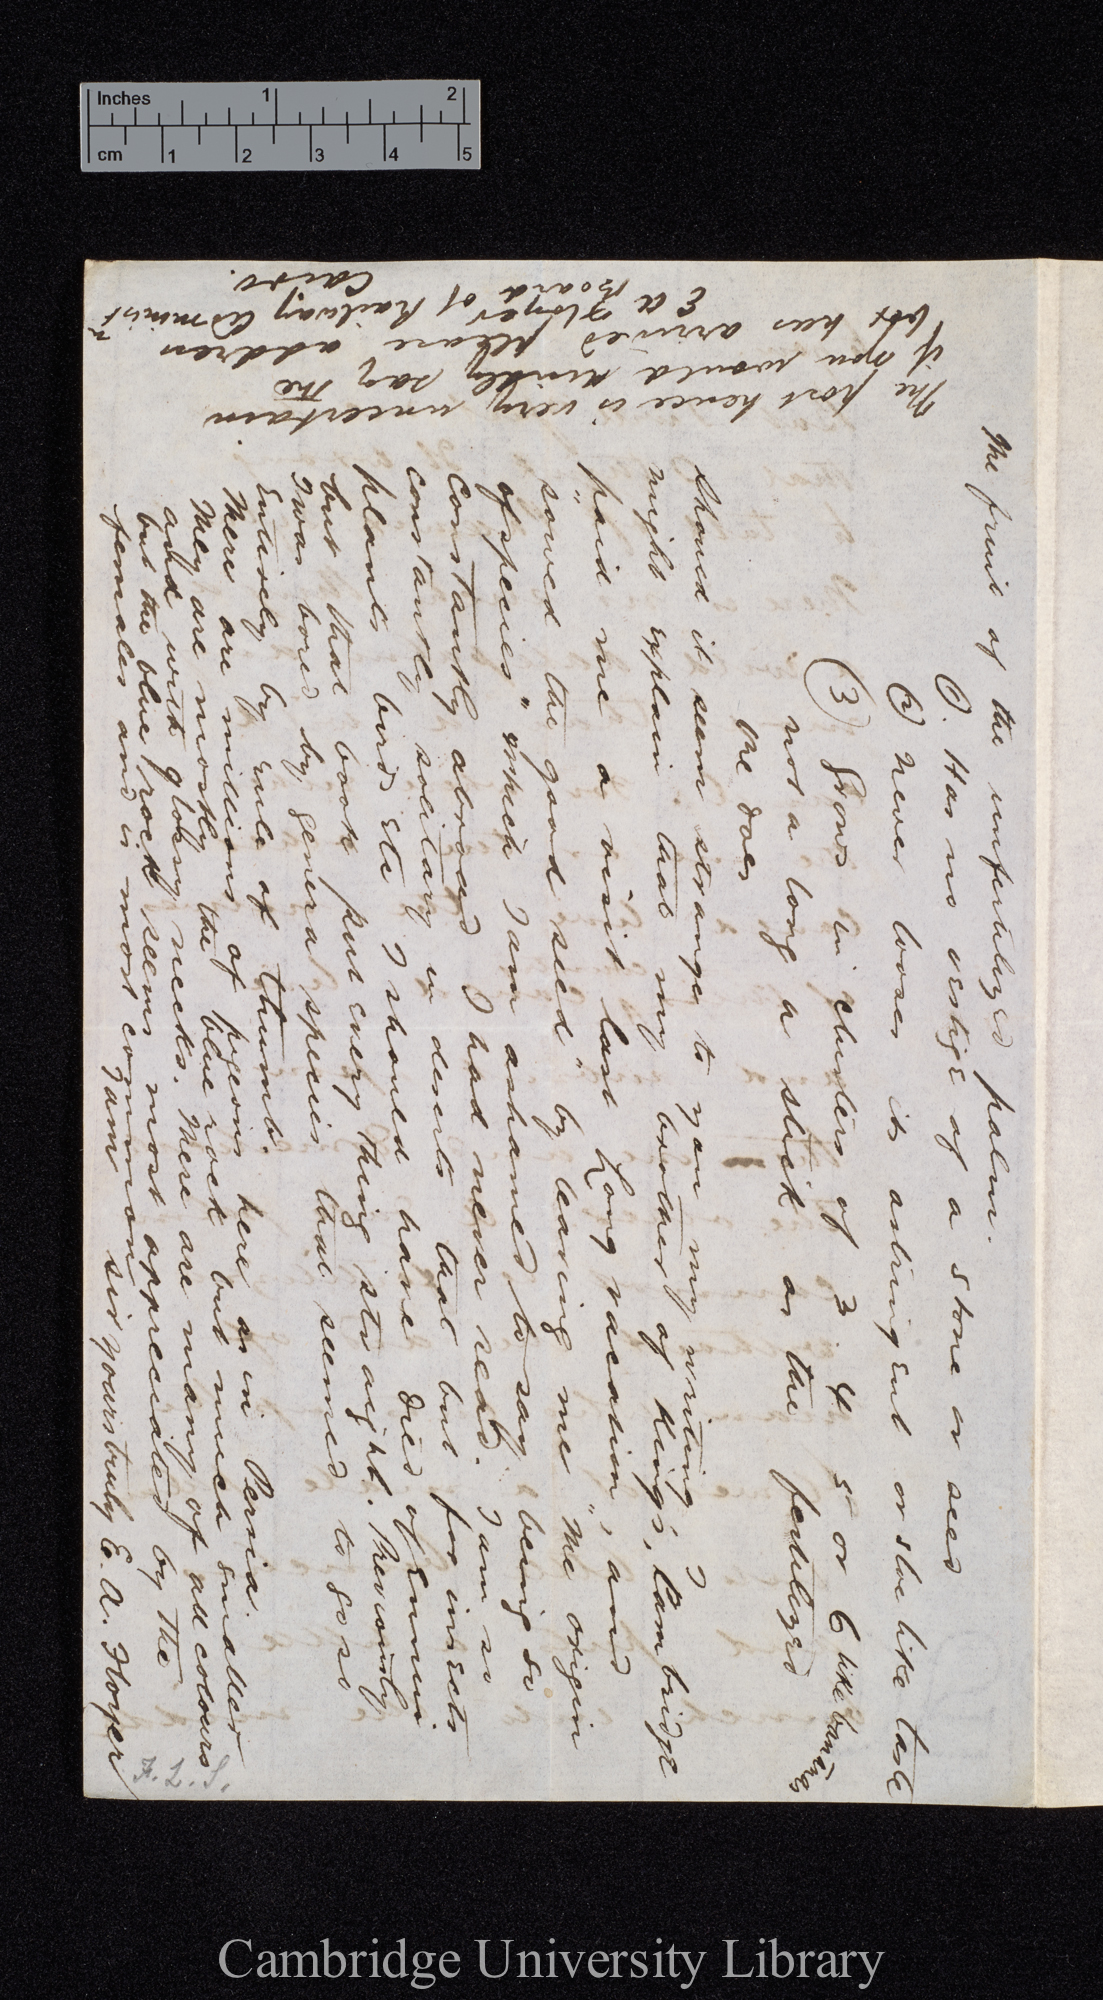 Inches 1 2
cm 1 2 3 4 5
The fruit of the unfertilized palm.
1. Has no vestige of a stone or seed
(2) never looses its astringent or sloe like taste
(3) Grows in clusters of 3 4 5 or 6 like bananas
not a long a stick as the fertilized
one does
Should it seem strange to you my writing I
might explain that my brother of Kings, Cambridge
paid me a visit last Long vacation, and
"sowed the good seed" by leaving me "The origin
of species" which I am ashamed to say being so
constantly abroad I had never read. I am so
constantly solitary in deserts that but for insects
plants birds etc I should have died of Ennui
but that book put every thing straight. Previously
I was bored by genera species that seemed to go so
entirely by rule of thumb.
There are millions of pigeons here as in Persia.
They are mostly the blue rock but much smaller
and with glossy necks. There are many of all colours
but the blue rock seems most appreciated by the
females and is most common
I am sir yours truly E. A. Floyer
F.L.S.
The post hence is very uncertain.
if you would kindly say the
box has arrived please address
E A Floyer
Board of Railway Administn
Cairo.
Cambridge University Library